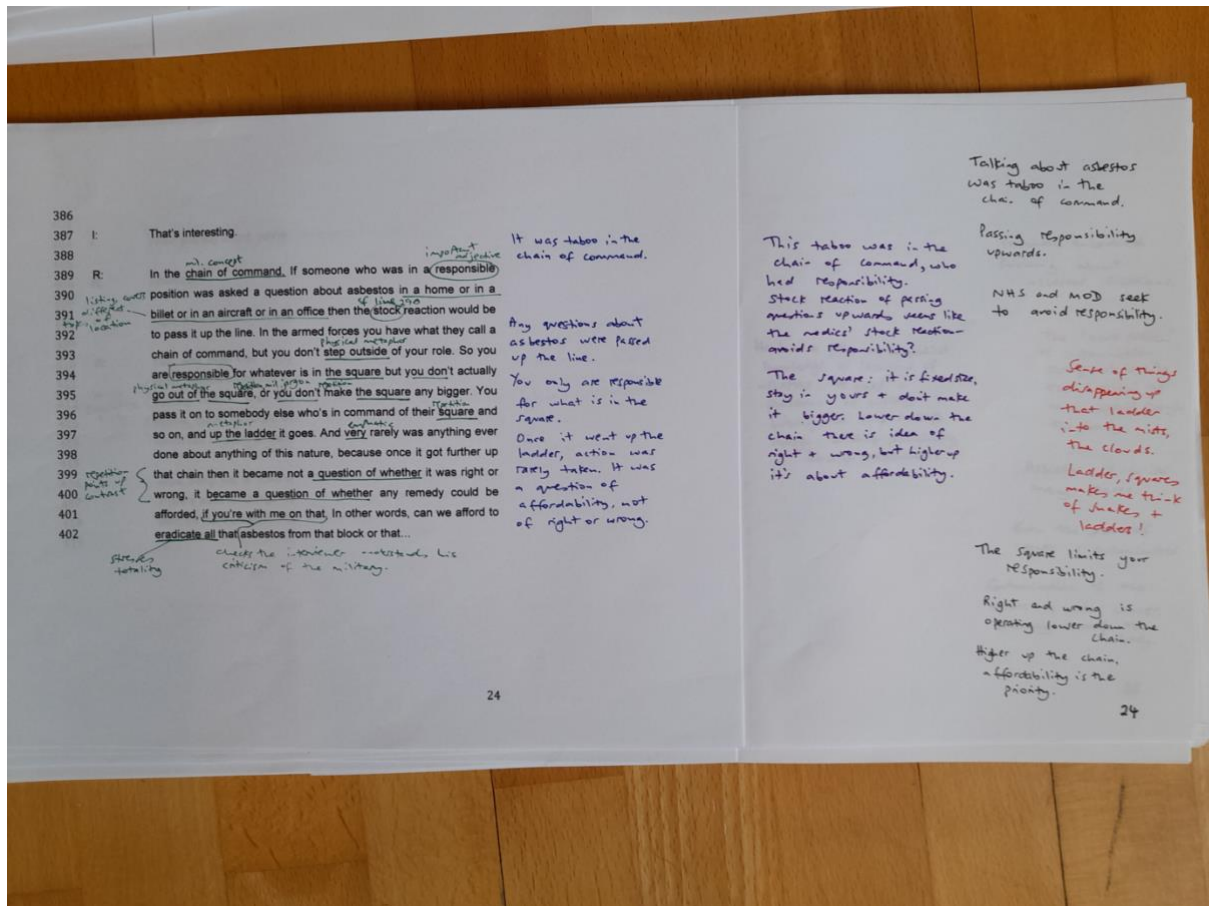 386
387 I: That's interesting.
388
389 R: In the chain of command. If someone who was in a responsible
390 position was asked a question about asbestos in a home or in a
391 billet or in an aircraft or in an office then the stock reaction would be
392 to pass it up the line. In the armed forces you have what they call a
393 chain of command, but you don't step outside of your role. So you
394 are responsible for whatever is in the square but you don't actually
395 go out of the square, or you don't make the square any bigger. You
396 pass it on to somebody else who's in command of their square and
397 so on, and up the ladder it goes. And very rarely was anything ever
398 done about anything of this nature, because once it got further up
399 that chain then it became not a question of whether it was right or
400 wrong, it became a question of whether any remedy could be
401 afforded, if you're with me on that. In other words, can we afford to
402 eradicate all that asbestos from that block or that...
mil. concept
important
adjective
listing
different
of
location
cf line 390
physical metaphor
physical metaphor
repetition
metaphor
emphatic
repetition
points up
contrast
stresses
totality
checks the interviewer understands his
criticism of the military.
24
It was taboo in the
chain of command.
Any questions about
asbestos were passed
up the line.
You only are responsible
for what is in the
square.
Once it went up the
ladder, action was
rarely taken. It was
a question of
affordability, not
of right or wrong.
This taboo was in the
chain of command, who
had responsibility.
Stock reaction of passing
questions upwards seems like
the medics' stock reaction -
avoids responsibility?
The square: it is fixed size,
stay in yours + don't make
it bigger. Lower down the
chain there is idea of
right + wrong, but higher up
it's about affordability.
Talking about asbestos
was taboo in the
chain of command.
Passing responsibility
upwards.
NHS and MOD seek
to avoid responsibility.
Sense of things
disappearing up
that ladder
into the mists,
the clouds.
Ladder, squares
makes me think
of snakes +
ladders!
The square limits your
responsibility.
Right and wrong is
operating lower down the
chain.
Higher up the chain,
affordability is the
priority.
24